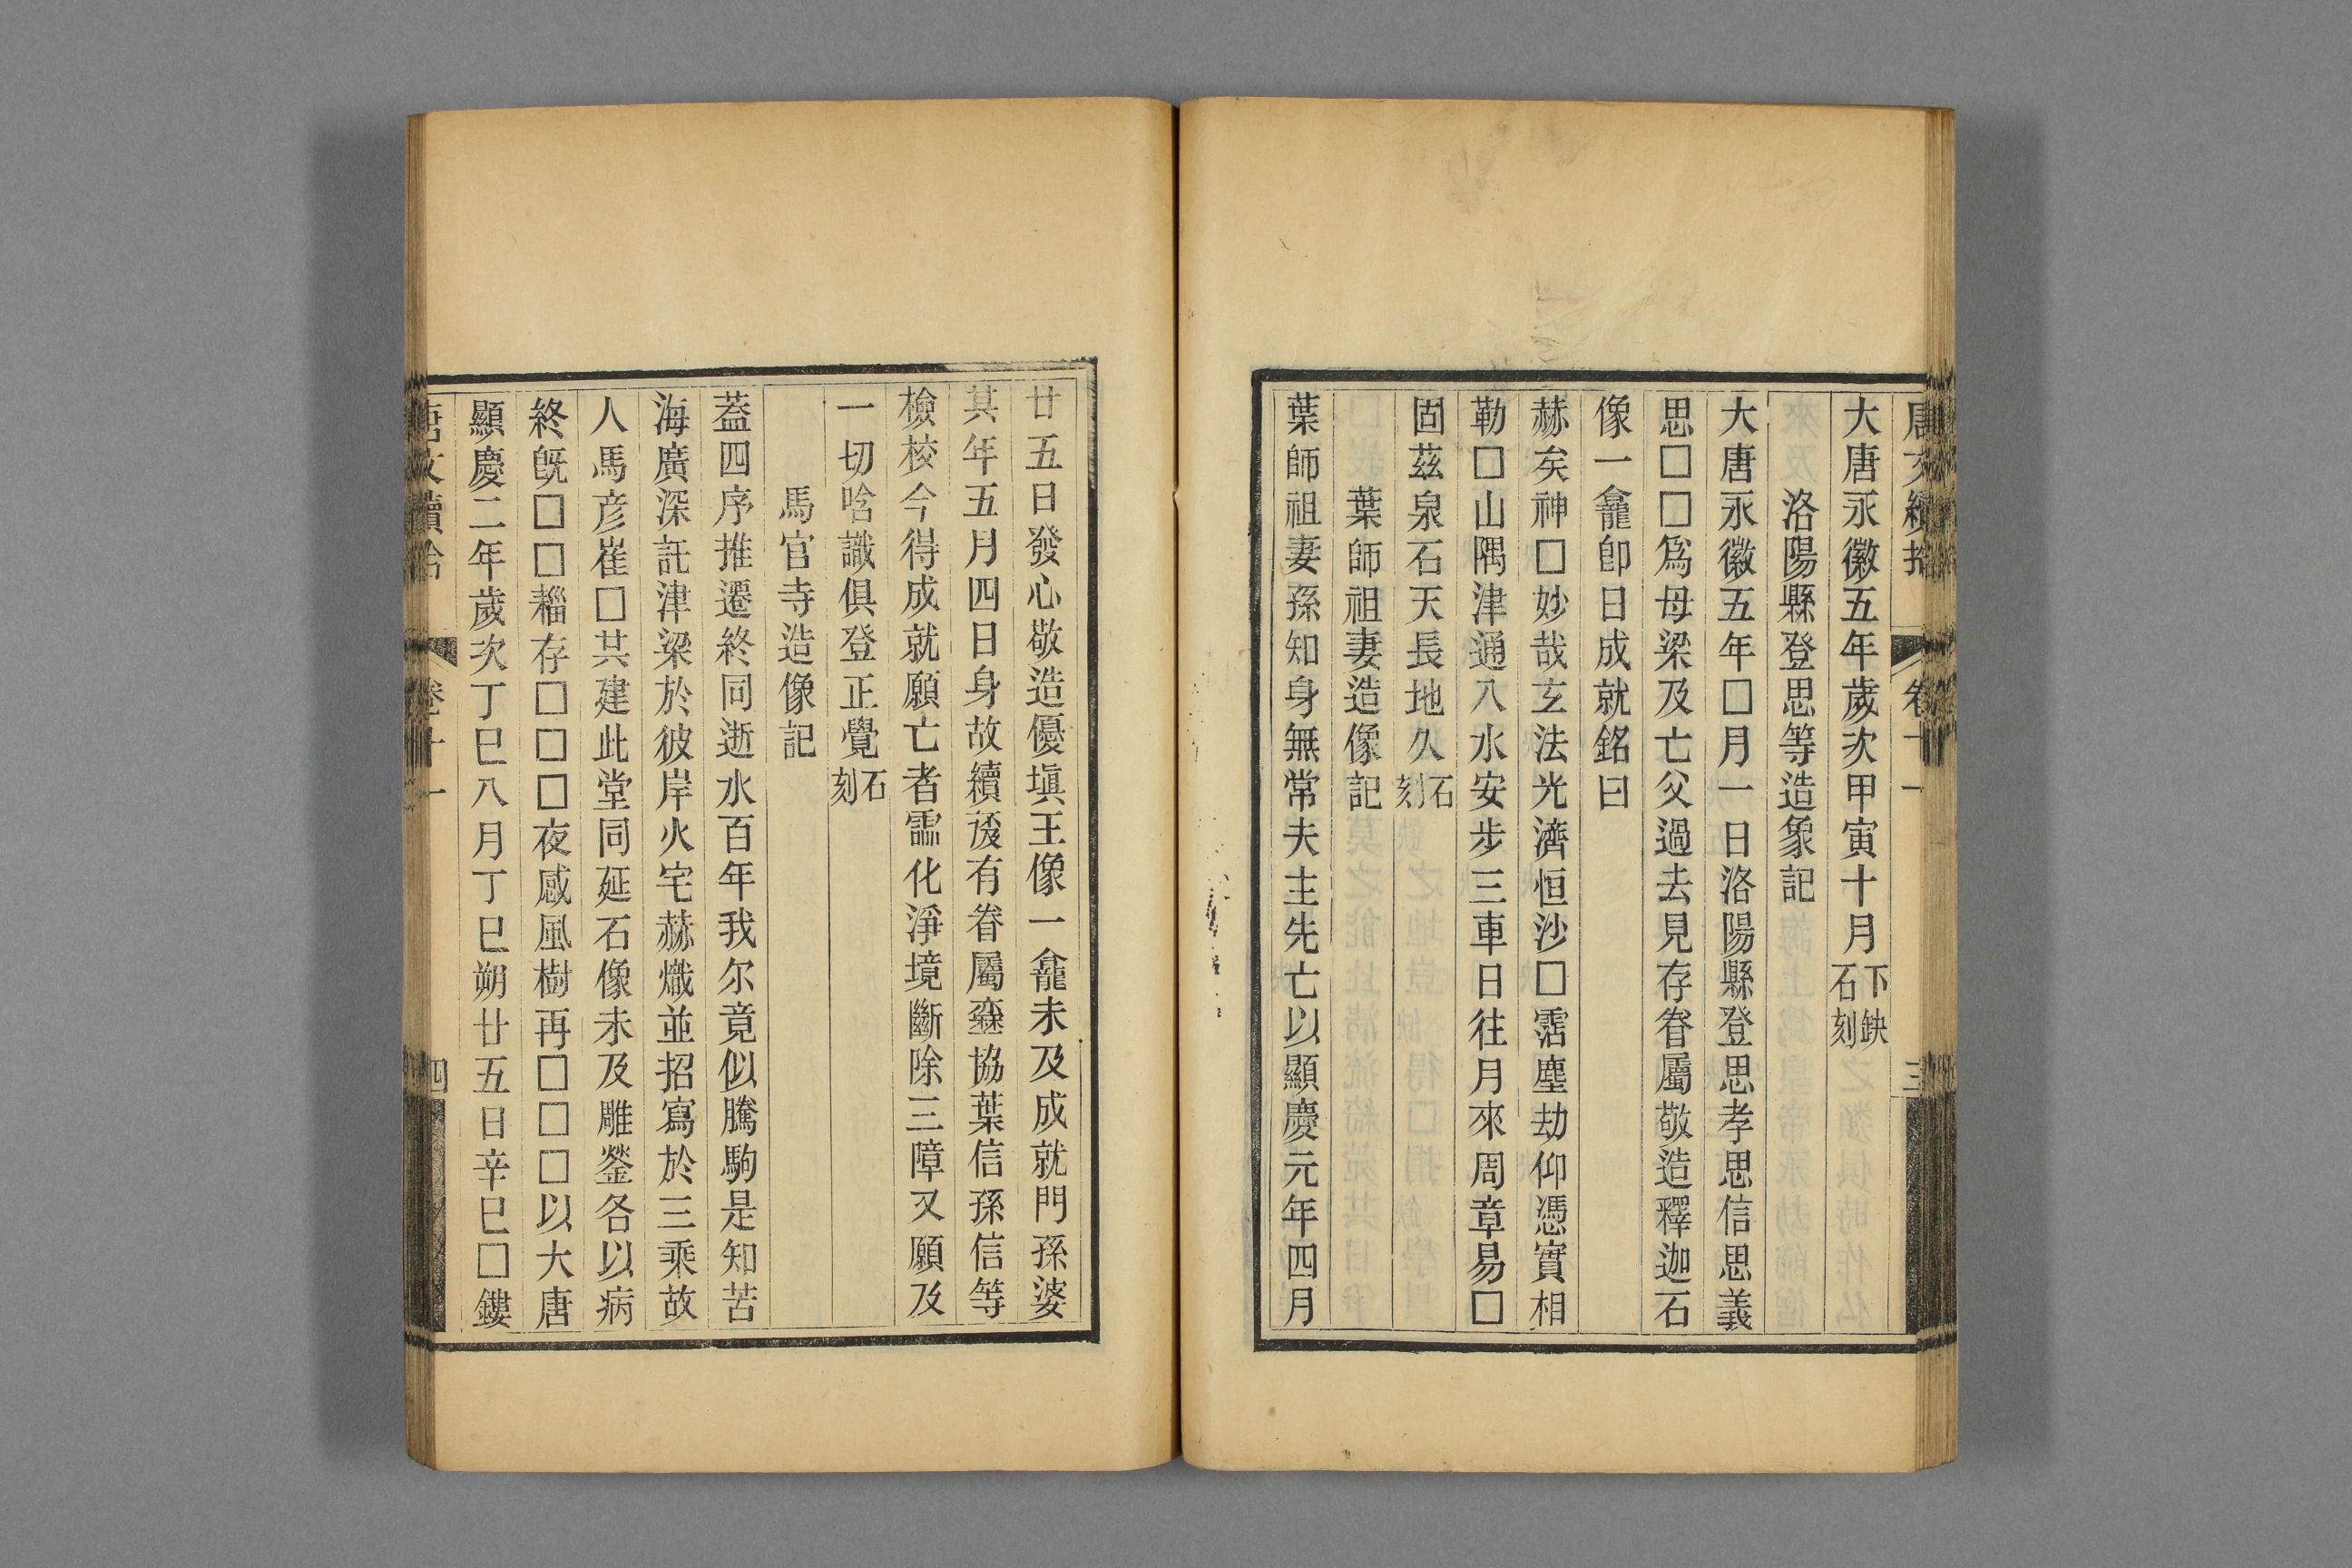 大唐永徽五年歲次甲寅十月下缺石刻
洛陽縣登思等造象記
大唐永徽五年□月一日洛陽縣登思孝思信思義
思□□爲母梁及亡父過去見存眷屬敬造釋迦石
像一龕卽日成就銘曰
赫矣神□妙哉玄法光濟恒沙□霑塵劫仰憑實相
勒□山隅津通八水安步三車日往月來周章易□
固茲泉石天長地久石刻
葉師祖妻造像記
葉師祖妻孫知身無常夫主先亡以顯慶元年四月
廿五日發心敬造優塡王像一龕未及成就門孫婆
其年五月四日身故續後有眷屬齊協葉信孫信等
檢校今得成就願亡者霝化淨境斷除三障又願及
一切含識俱登正覺石刻
馬官寺造像記
蓋四序推遷終同逝水百年我尔竟似騰駒是知苦
海廣深託津梁於彼岸火宅赫熾並招寫於三乘故
人馬彥崔□其建此堂同延石像未及雕鎣各以病
終旣□□緇存□□□夜感風樹再□□□以大唐
顯慶二年歲次丁巳八月丁巳朔廿五日辛巳□鏤